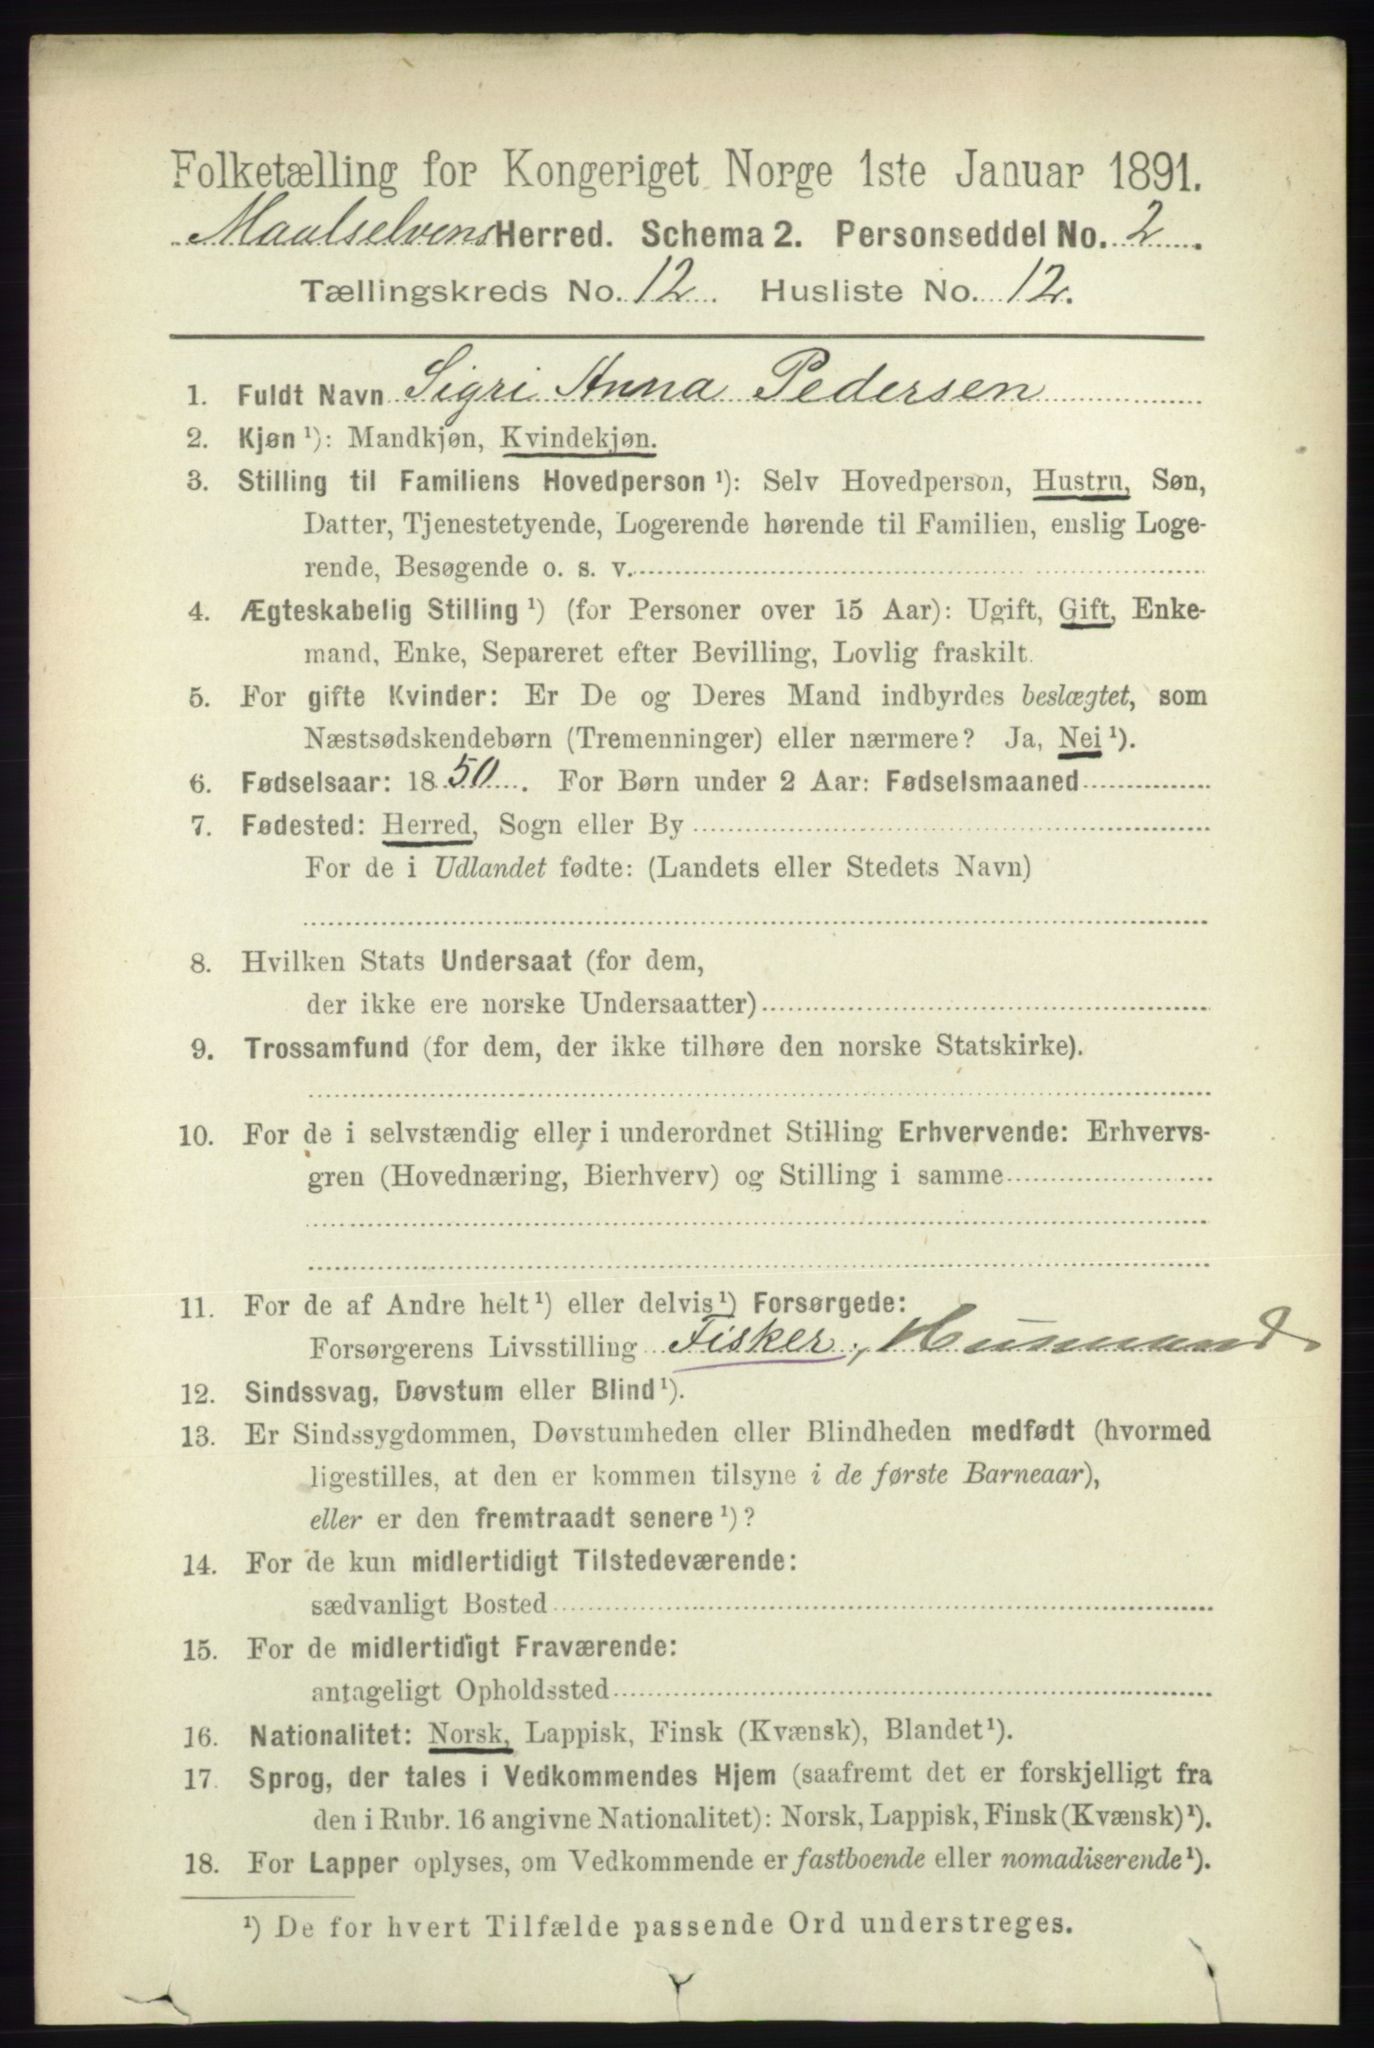 Folketælling for Kongeriget Norge 1ste Januar 1891.
Maalselvens Herred. Schema 2. Personseddel No. 2.
Tællingskreds No. 12. Husliste No. 12.
1. Fuldt Navn Sigri Anna Pedersen
2. Kjøn ¹): Mandkjøn, Kvindekjøn.
3. Stilling til Familiens Hovedperson ¹): Selv Hovedperson, Hustru, Søn,
Datter, Tjenestetyende, Logerende hørende til Familien, enslig Loge-
rende, Besøgende o. s. v.
4. Ægteskabelig Stilling ¹) (for Personer over 15 Aar): Ugift, Gift, Enke-
mand, Enke, Separeret efter Bevilling, Lovlig fraskilt.
5. For gifte Kvinder: Er De og Deres Mand indbyrdes beslægtet, som
Næstsødskendebørn (Tremenninger) eller nærmere? Ja, Nei ¹).
6. Fødselsaar: 1850. For Børn under 2 Aar: Fødselsmaaned
7. Fødested: Herred, Sogn eller By
For de i Udlandet fødte: (Landets eller Stedets Navn)
8. Hvilken Stats Undersaat (for dem,
der ikke ere norske Undersaatter)
9. Trossamfund (for dem, der ikke tilhøre den norske Statskirke).
10. For de i selvstændig eller i underordnet Stilling Erhvervende: Erhvervs-
gren (Hovednæring, Bierhverv) og Stilling i samme
11. For de af Andre helt ¹) eller delvis ¹) Forsørgede:
Forsørgerens Livsstilling Fisker, Husmand
12. Sindssvag, Døvstum eller Blind ¹).
13. Er Sindssygdommen, Døvstumheden eller Blindheden medfødt (hvormed
ligestilles, at den er kommen tilsyne i de første Barneaar),
eller er den fremtraadt senere ¹)?
14. For de kun midlertidigt Tilstedeværende:
sædvanligt Bosted
15. For de midlertidigt Fraværende:
antageligt Opholdssted
16. Nationalitet: Norsk, Lappisk, Finsk (Kvænsk), Blandet ¹).
17. Sprog, der tales i Vedkommendes Hjem (saafremt det er forskjelligt fra
den i Rubr. 16 angivne Nationalitet): Norsk, Lappisk, Finsk (Kvænsk) ¹).
18. For Lapper oplyses, om Vedkommende er fastboende eller nomadiserende ¹).
¹) De for hvert Tilfælde passende Ord understreges.